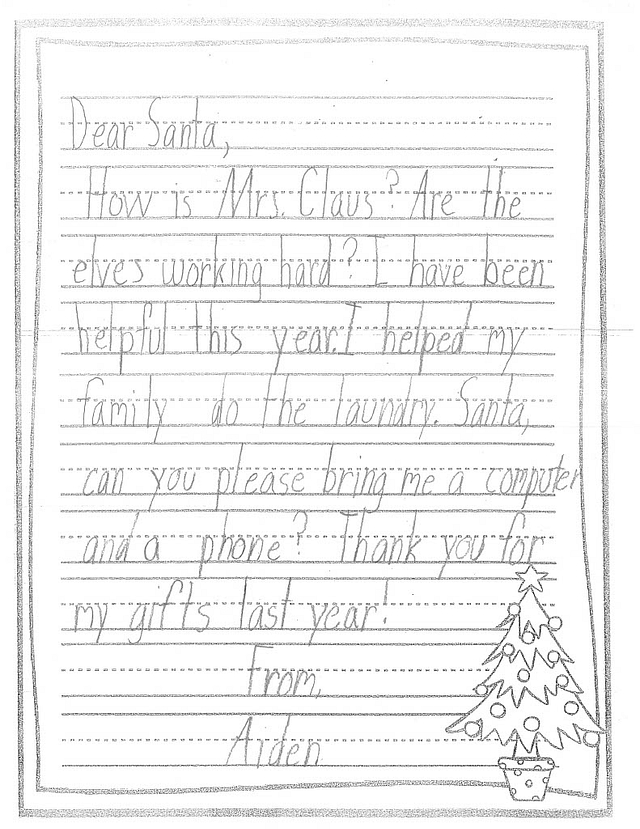 Dear Santa,
How is Mrs. Claus? Are the
elves working hard? I have been
helpful this year. I helped my
family do the laundry. Santa,
can you please bring me a computer
and a phone? Thank you for
my gifts last year!
From,
Aiden